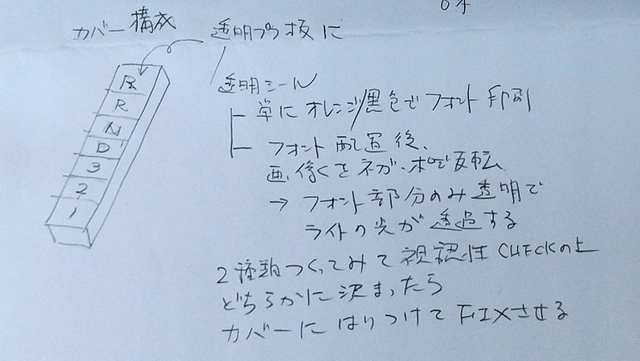 カバー構成
透明プラ板に
透明シール
単にオレンジ/黒色でフォント印刷
フォント配置後、
画像をネガ・ポジ反転
→ フォント部分のみ透明で
ライトの光が透過する
2種類つくってみて視認性CHECKの上
どちらかに決まったら
カバーにはりつけてFIXさせる
R
N
D
3
2
1